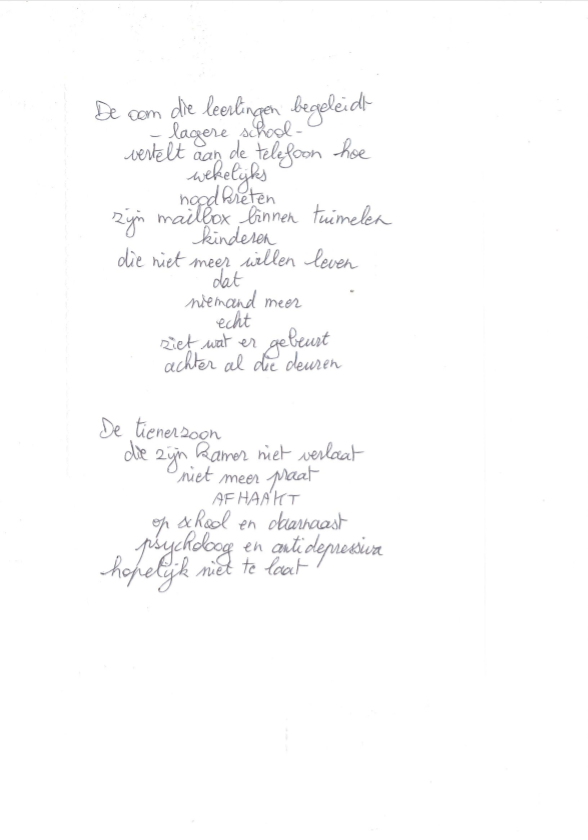 De oom die leerlingen begeleidt
- lagere school -
vertelt aan de telefoon hoe
wekelijks
noodkreten
zijn mailbox binnen tuimelen
kinderen
die niet meer willen leven
dat
niemand meer
echt
ziet wat er gebeurt
achter al die deuren
De tienerzoon
die zijn kamer niet verlaat
niet meer praat
AFHAAKT
op school en daarnaast
psycholoog en antidepressiva
hopelijk niet te laat